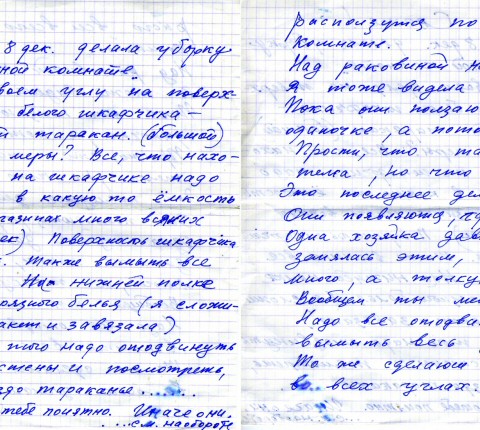 8 дек. делала уборку
ной комнате.
воем углу на поверх-
белого шкафчика –
й таракан. (большой)
меры? Все, что нахо-
на шкафчике надо
в какую то ёмкость
газинах много всяких
ек) Поверхность шкафчика
. Также вымыть все
На нижней полке
рязного белья (я сложи-
акет и завязала)
того надо отодвинуть
стены и посмотреть,
здо тараканье......
тебе понятно. Иначе они.
...см. наоборот
расползутся по
комнате.
Над раковиной н
Я тоже видела
Пока они ползаю
одиночке, а пото
Прости, что та
тема, но что
Это последнее дел
Они появляются, чу
Одна хозяйка дав
занялась этим,
много, а толку
Вообщем ты ме
Надо все отодви
вымыть весь
То же сделаеш
во всех углах.